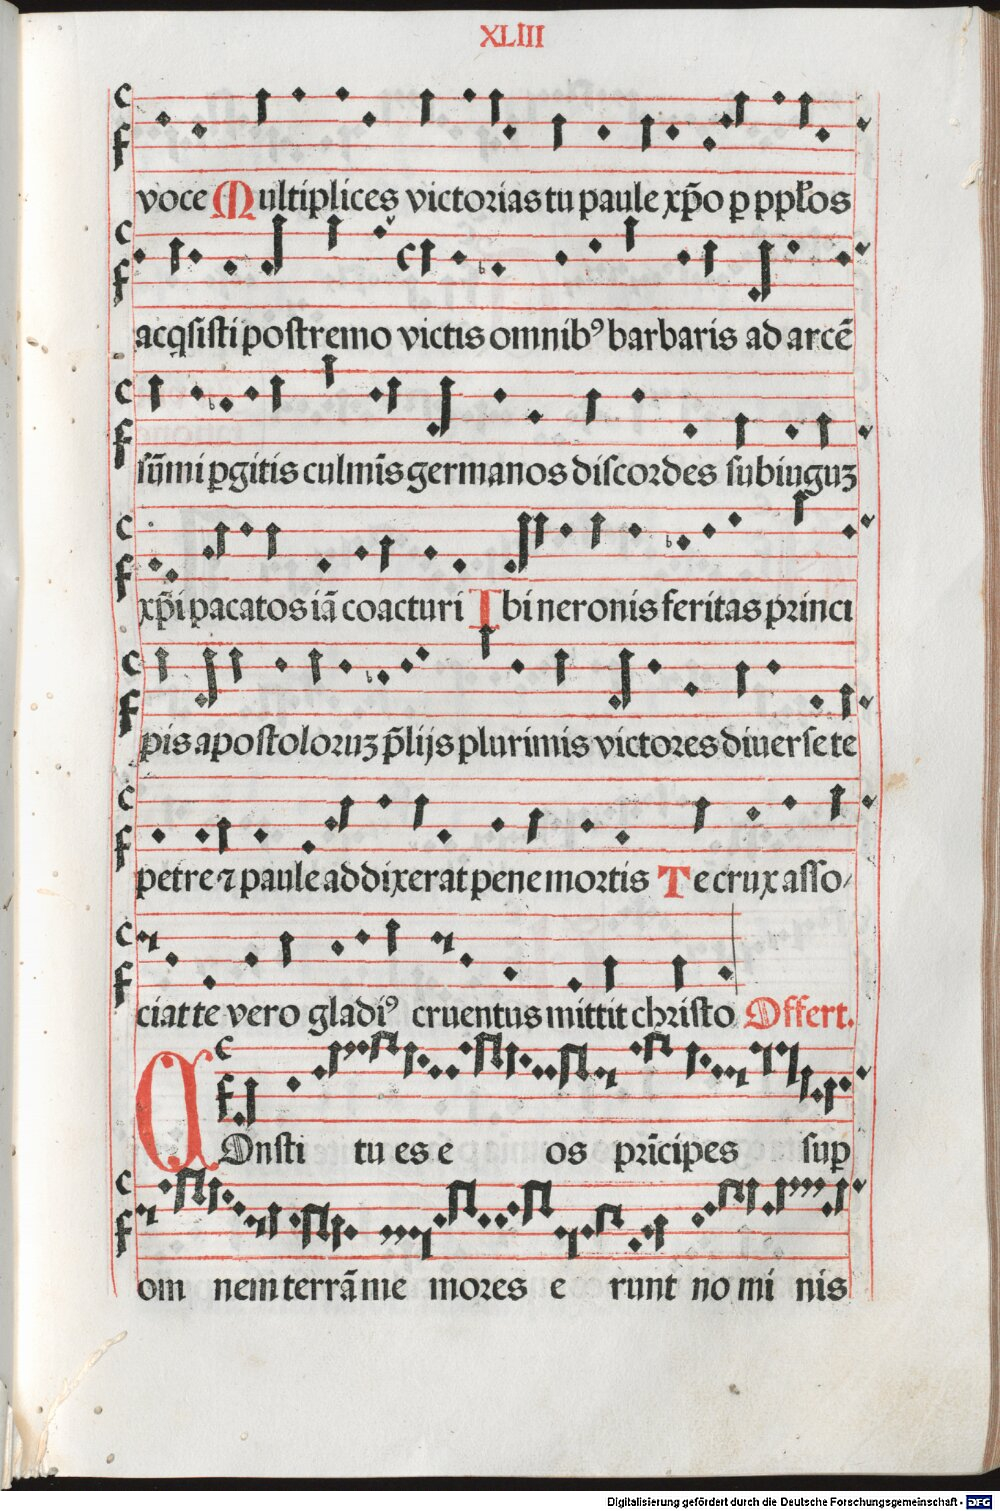 XLIII
voce Multiplices victorias tu paule xp̄o p ppl̄os
acq̄sisti postremo victis omnibꝰ barbaris ad arcē
sūmi ꝑgitis culmīs germanos discordes sub iuguꝫ
xp̄i pacatos iā coacturi Ibi neronis feritas princi
pis apostoloruꝫ p̄lijs plurimis victores diuerse te
petre ⁊ paule addixerat pene mortis Te crux asso
ciat te vero gladiꝰ cruentus mittit christo Offert.
COnsti tu es e os prīcipes sup
om nem terrā me mores e runt no mi nis
Digitalisierung gefördert durch die Deutsche Forschungsgemeinschaft - DFG